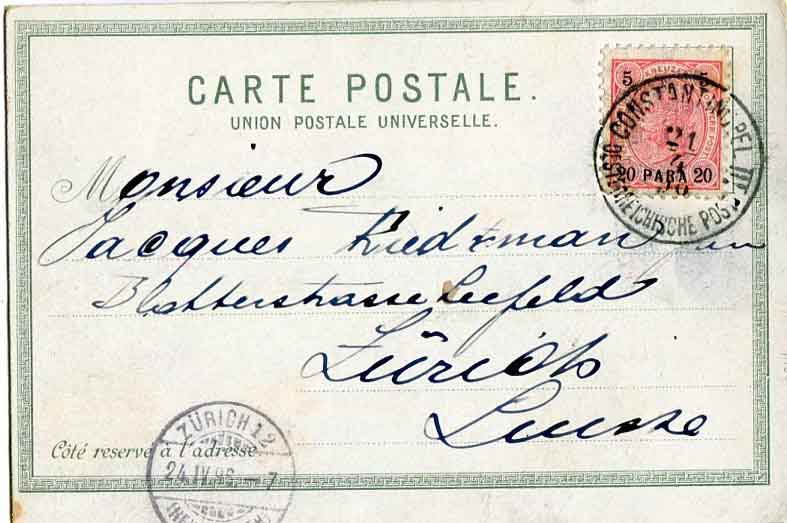 CARTE POSTALE.
UNION POSTALE UNIVERSELLE.
5 KREUZER 5
20 PARA 20
CONSTANTINOPEL III
21
4
ÖSTERREICHISCHE POST
Monsieur
Jacques Riedtman
Seefeld
Zürich
Suisse
Côté reservé à l'adresse.
ZÜRICH 12
24.IV.98.–7